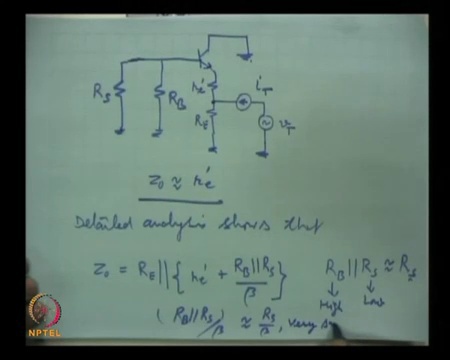 R_S
R_B
r_e'
R_E
i_T
v_T
Z_o ≈ r_e'
Detailed analysis shows that
Z_o = R_E || { r_e' + R_B || R_S / β }
R_B || R_S ≈ R_S
↓ ↓
High Low
( R_B || R_S ) / β ≈ R_S / β , very s
NPTEL